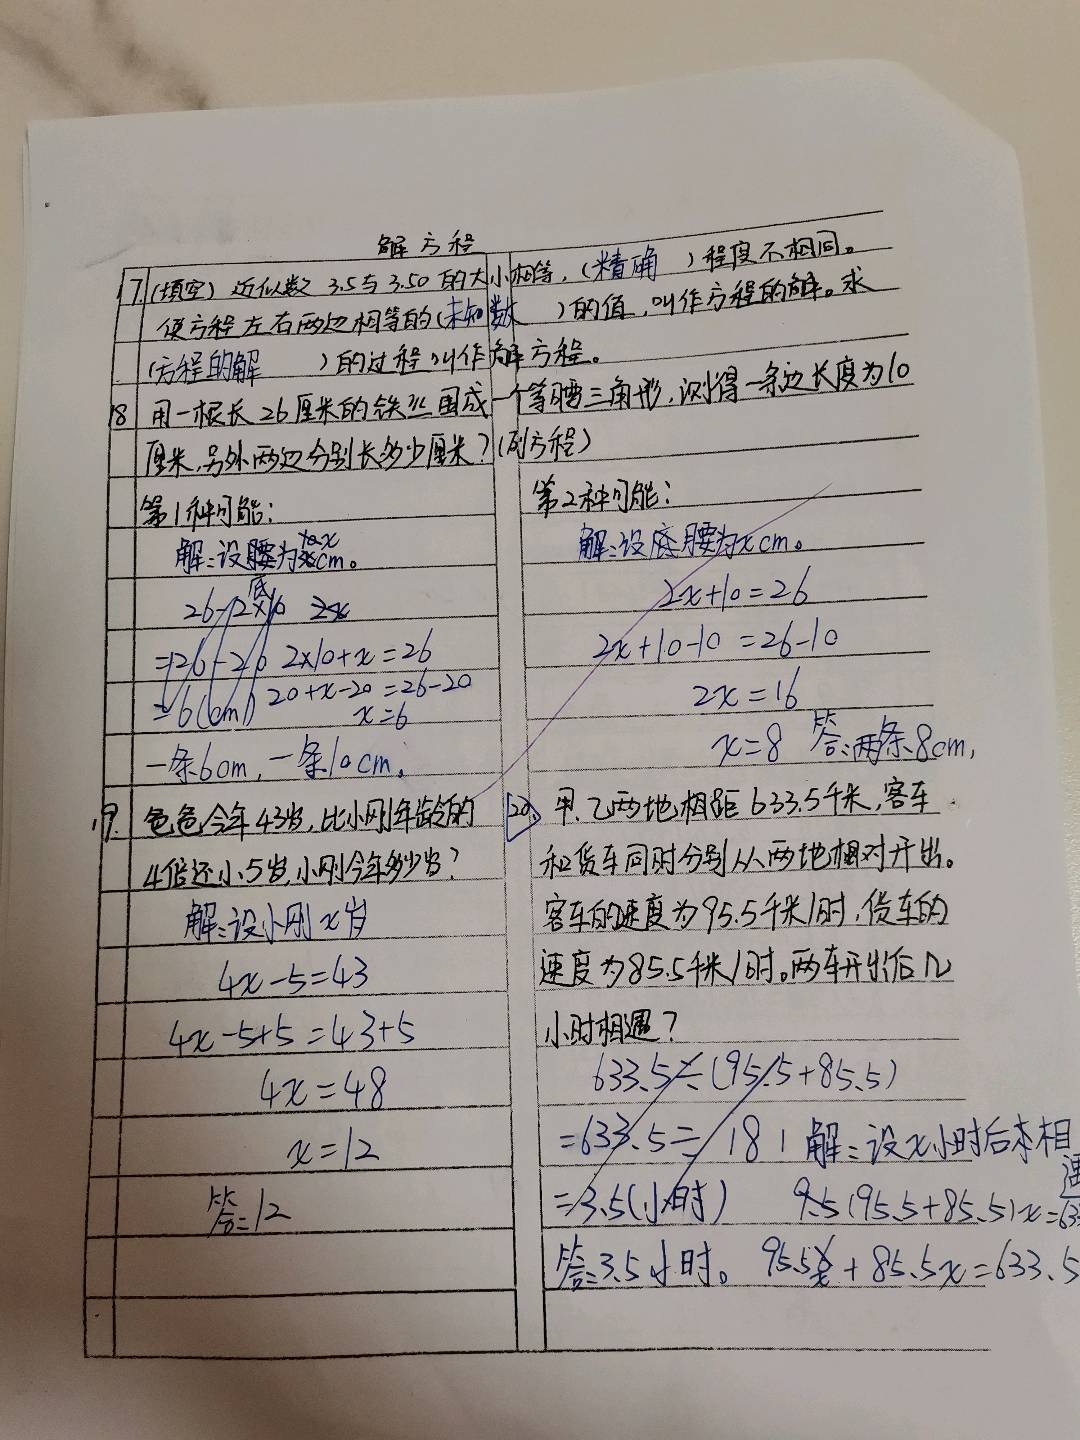 解方程
17 (填空) 近似数 3.5与3.50的大小相等，(精确 ) 程度不相同。
使方程左右两边相等的(未知数 )的值，叫作方程的解。求
(方程的解 )的过程叫作解方程。
18 用一根长26厘米的铁丝围成一个等腰三角形，测得一条边长度为10
厘米，另外两边分别长多少厘米？(列方程)
第1种可能：
解：设腰为 cm。
底
26-2×10 2x
=26-20 2×10+x=26
=6(cm) 20+x-20=26-20
x=6
一条6cm，一条10cm。
第2种可能：
解：设底腰为xcm。
2x+10=26
2x+10-10=26-10
2x=16
x=8 答：两条8cm，
19. 爸爸今年43岁，比小刚年龄的
4倍还小5岁，小刚今年多少岁？
解：设小刚x岁
4x-5=43
4x-5+5=43+5
4x=48
x=12
答：12
20 甲、乙两地相距633.5千米，客车
和货车同时分别从两地相对开出。
客车的速度为95.5千米/时，货车的
速度为85.5千米/时。两车开出后几
小时相遇？
633.5÷(95.5+85.5)
=633.5÷181 解：设x小时后相
遇
=3.5(小时) (95.5+85.5)x=633
答：3.5小时。 95.5x+85.5x=633.5